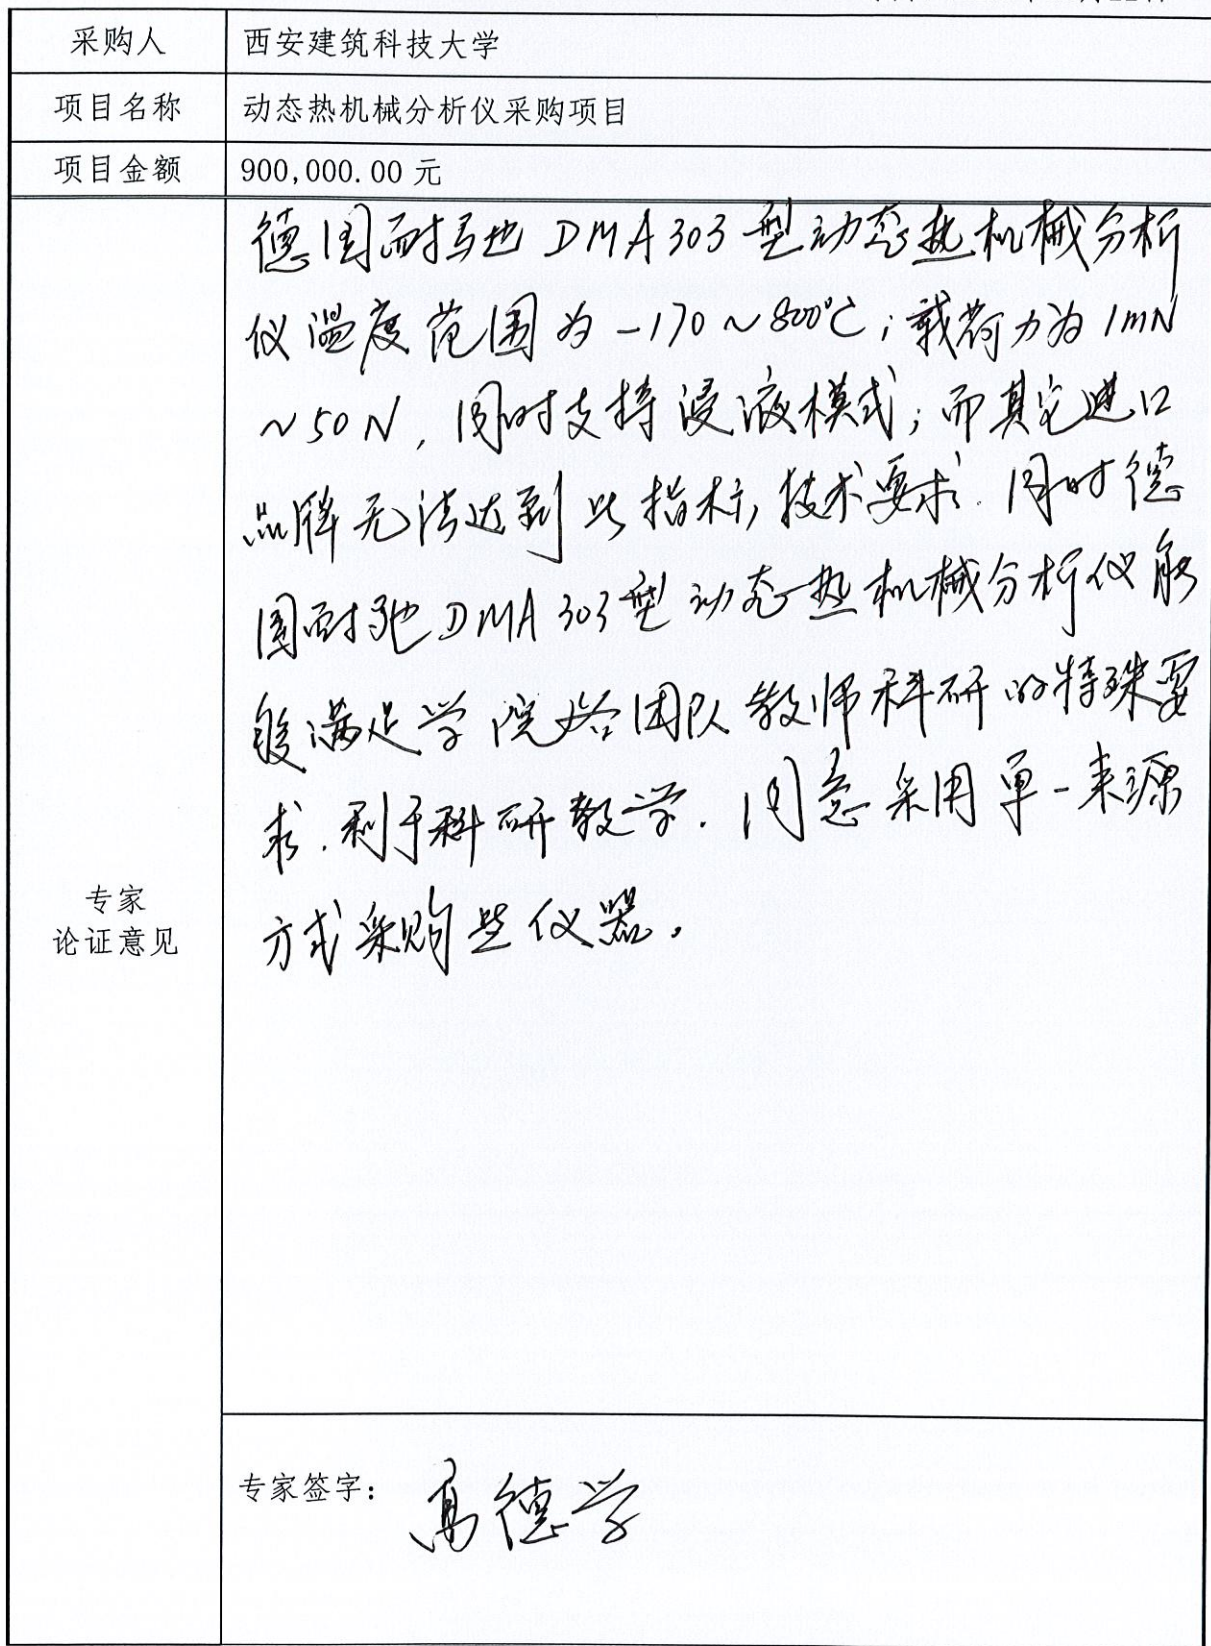 采购人 西安建筑科技大学
项目名称 动态热机械分析仪采购项目
项目金额 900,000.00 元
德国耐驰 DMA303 型动态热机械分析
仪温度范围为 -170~800℃；载荷力为 1mN
~50N，同时支持浸液模式；而其它进口
品牌无法达到此指标，技术要求．同时德
国耐驰 DMA 303型动态热机械分析仪能
够满足学院各团队教师科研的特殊要
求．利于科研教学．同意采用单一来源
方式采购此仪器。
专家
论证意见
专家签字： 高德学